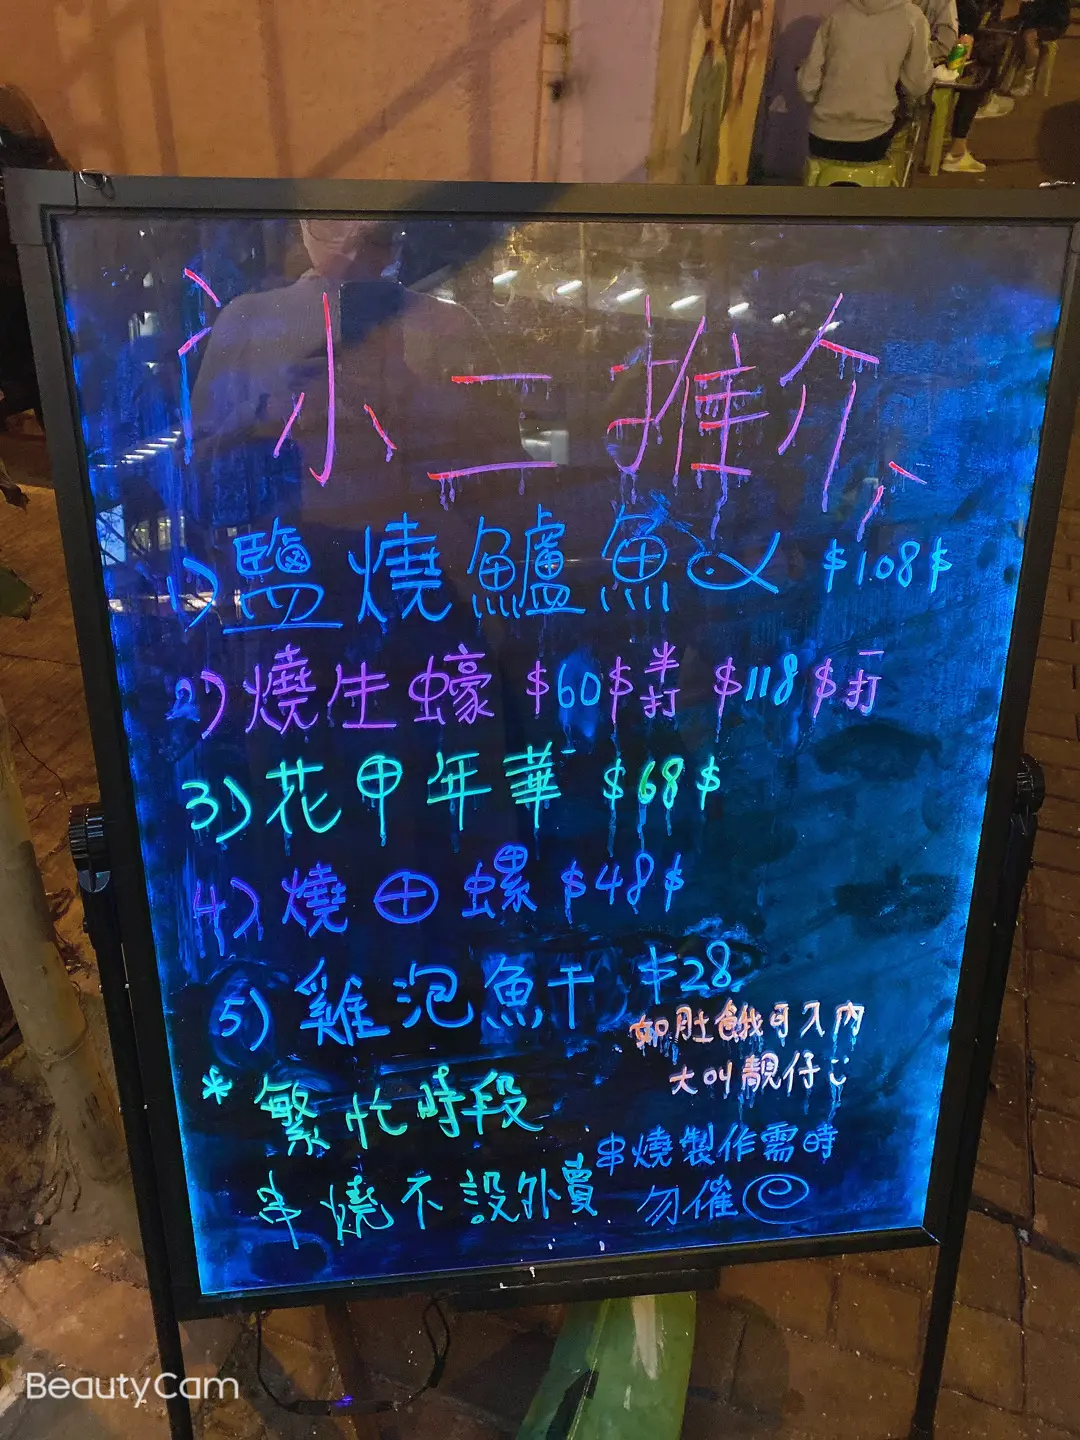 小二推介
1) 鹽燒鱸魚 $108$
2) 燒生蠔 $60$半打 $118$一打
3) 花甲年華 $68$
4) 燒田螺 $48$
5) 雞泡魚干 $28
如肚餓可入內
大叫靚仔
* 繁忙時段
串燒不設外賣
串燒製作需時
勿催
BeautyCam